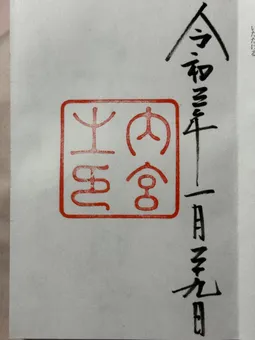 令和三年一月二十九日
内宮
之印